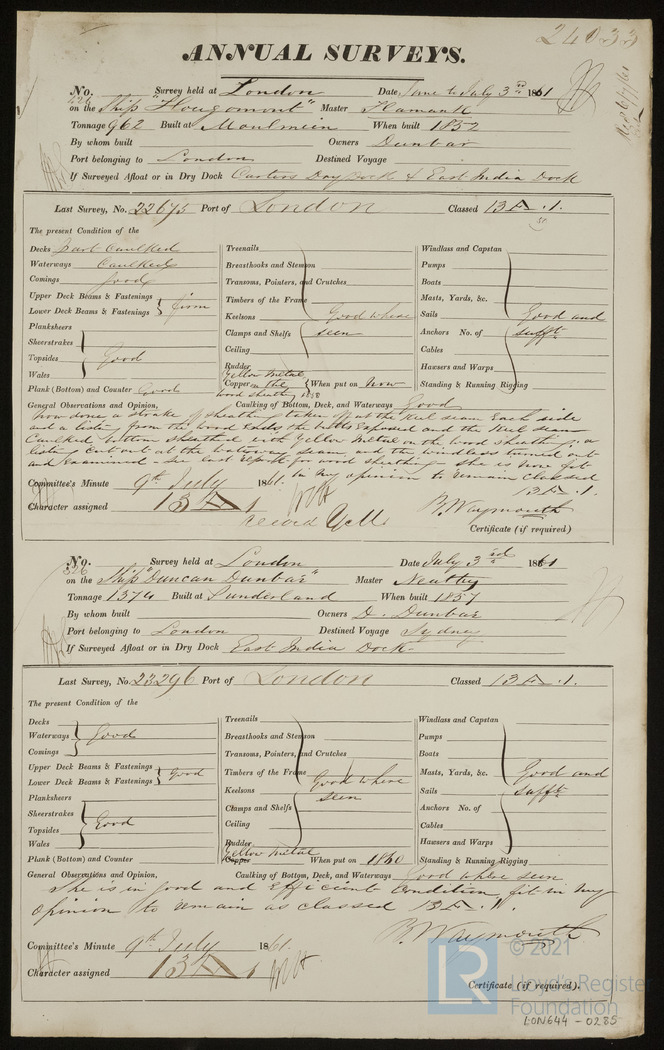 24033
ANNUAL SURVEYS.
No. 526 Survey held at London Date June to July 3rd 1861
on the Ship "Hougomont" Master Hamank
Tonnage 962 Built at Moulmein When built 1852
By whom built Owners Dunbar
Port belonging to London Destined Voyage
If Surveyed Afloat or in Dry Dock Carters Dry Dock & East India Dock
Rec 6/7/61
Last Survey, No. 22675 Port of London Classed 13 A .1.
The present Condition of the
Decks part Caulked
Waterways Caulked
Comings good
Upper Deck Beams & Fastenings
Lower Deck Beams & Fastenings firm
Planksheers
Sheerstrakes
Topsides Good
Wales
Plank (Bottom) and Counter Good
Treenails
Breasthooks and Stemson
Transoms, Pointers, and Crutches
Timbers of the Frame
Keelsons Good where
Clamps and Shelfs seen
Ceiling
Rudder
Yellow Metal
Copper on the wood sheathing 1858 When put on Now
Windlass and Capstan
Pumps
Boats
Masts, Yards, &c.
Sails Good and
Anchors No. of sufft
Cables
Hawsers and Warps
Standing & Running Rigging
General Observations and Opinion, Caulking of Bottom, Deck, and Waterways Good
Now done a strake of sheathing taken off at the keel seam Each side
and a listing from the wood Ends the bolts Exposed and the keel seam
Caulked bottom sheathed with Yellow Metal on the wood sheathing, a
listing cut out at the waterway seam and the windlass turned out
and Examined - See last report for wood sheathing - She is now fit
in my opinion to remain classed
13 A .1.
Committee's Minute 9th July 1861.
Character assigned 13 A 1
record YM
B. Waymouth
Certificate (if required)
No. 526 Survey held at London Date July 3rd 1861
on the Ship "Duncan Dunbar" Master Neatby
Tonnage 1374 Built at Sunderland When built 1857
By whom built Owners D. Dunbar
Port belonging to London Destined Voyage Sydney
If Surveyed Afloat or in Dry Dock East India Dock
Last Survey, No. 23296 Port of London Classed 13 A .1.
The present Condition of the
Decks
Waterways Good
Comings
Upper Deck Beams & Fastenings
Lower Deck Beams & Fastenings Good
Planksheers
Sheerstrakes
Topsides Good
Wales
Plank (Bottom) and Counter
Treenails
Breasthooks and Stemson
Transoms, Pointers, and Crutches
Timbers of the Frame Good where
Keelsons seen
Clamps and Shelfs
Ceiling
Rudder
Yellow Metal
Copper When put on 1860
Windlass and Capstan
Pumps
Boats
Masts, Yards, &c. Good and
Sails sufft
Anchors No. of
Cables
Hawsers and Warps
Standing & Running Rigging
General Observations and Opinion, Caulking of Bottom, Deck, and Waterways Good where seen
She is in good and Efficient Condition, fit in my
opinion to remain as classed 13 A .1.
B. Waymouth
Committee's Minute 9th July 1861.
Character assigned 13 A 1
Certificate (if required).
© 2021
Lloyd's Register
Foundation
LR
LON644-0285